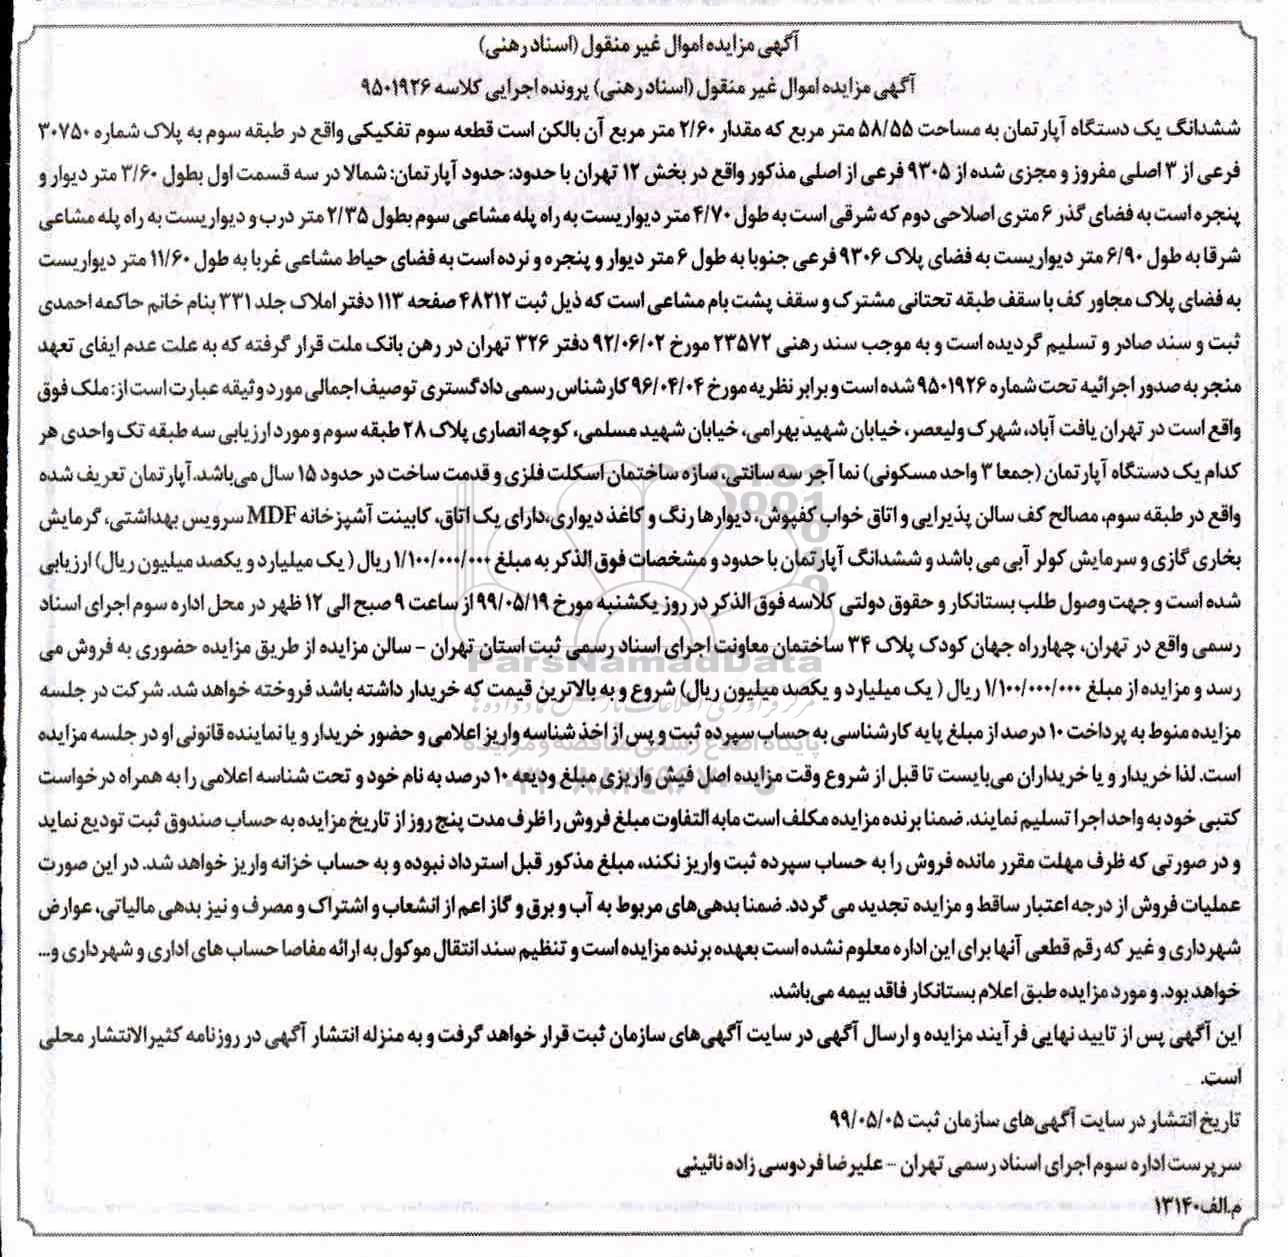 آگهی مزایده اموال غیر منقول (اسناد رهنی)
آگهی مزایده اموال غیر منقول (اسناد رهنی) پرونده اجرایی کلاسه ۹۵۰۱۹۲۶
ششدانگ یک دستگاه آپارتمان به مساحت ۵۸/۵۵ متر مربع که مقدار ۲/۶۰ متر مربع آن بالکن است قطعه سوم تفکیکی واقع در طبقه سوم به پلاک شماره ۳۰۷۵۰
فرعی از ۳ اصلی مفروز و مجزی شده از ۹۳۰۵ فرعی از اصلی مذکور واقع در بخش ۱۲ تهران با حدود: حدود آپارتمان: شمالا در سه قسمت اول بطول ۳/۶۰ متر دیوار و
پنجره است به فضای گذر ۶ متری اصلاحی دوم که شرقی است به طول ۴/۷۰ متر دیواریست به راه پله مشاعی سوم بطول ۲/۳۵ متر درب و دیواریست به راه پله مشاعی
شرقا به طول ۶/۹۰ متر دیواریست به فضای پلاک ۹۳۰۶ فرعی جنوبا به طول ۶ متر دیوار و پنجره و نرده است به فضای حیاط مشاعی غربا به طول ۱۱/۶۰ متر دیواریست
به فضای پلاک مجاور کف با سقف طبقه تحتانی مشترک و سقف پشت بام مشاعی است که ذیل ثبت ۴۸۲۱۲ صفحه ۱۱۳ دفتر املاک جلد ۳۳۱ بنام خانم حاکمه احمدی
ثبت و سند صادر و تسلیم گردیده است و به موجب سند رهنی ۲۳۵۷۲ مورخ ۹۲/۰۶/۰۲ دفتر ۳۲۶ تهران در رهن بانک ملت قرار گرفته که به علت عدم ایفای تعهد
منجر به صدور اجرائیه تحت شماره ۹۵۰۱۹۲۶ شده است و برابر نظریه مورخ ۹۶/۰۴/۰۴ کارشناس رسمی دادگستری توصیف اجمالی مورد وثیقه عبارت است از: ملک فوق
واقع است در تهران یافت آباد، شهرک ولیعصر، خیابان شهید بهرامی، خیابان شهید مسلمی، کوچه انصاری پلاک ۲۸ طبقه سوم و مورد ارزیابی سه طبقه تک واحدی هر
کدام یک دستگاه آپارتمان (جمعا ۳ واحد مسکونی) نما آجر سه سانتی، سازه ساختمان اسکلت فلزی و قدمت ساخت در حدود ۱۵ سال می‌باشد. آپارتمان تعریف شده
واقع در طبقه سوم، مصالح کف سالن پذیرایی و اتاق خواب کفپوش، دیوارها رنگ و کاغذ دیواری، دارای یک اتاق، کابینت آشپزخانه MDF سرویس بهداشتی، گرمایش
بخاری گازی و سرمایش کولر آبی می باشد و ششدانگ آپارتمان با حدود و مشخصات فوق الذکر به مبلغ ۱/۱۰۰/۰۰۰/۰۰۰ ریال ( یک میلیارد و یکصد میلیون ریال) ارزیابی
شده است و جهت وصول طلب بستانکار و حقوق دولتی کلاسه فوق الذکر در روز یکشنبه مورخ ۹۹/۰۵/۱۹ از ساعت ۹ صبح الی ۱۲ ظهر در محل اداره سوم اجرای اسناد
رسمی واقع در تهران، چهارراه جهان کودک پلاک ۳۴ ساختمان معاونت اجرای اسناد رسمی ثبت استان تهران - سالن مزایده از طریق مزایده حضوری به فروش می
رسد و مزایده از مبلغ ۱/۱۰۰/۰۰۰/۰۰۰ ریال ( یک میلیارد و یکصد میلیون ریال) شروع و به بالاترین قیمت که خریدار داشته باشد فروخته خواهد شد. شرکت در جلسه
مزایده منوط به پرداخت ۱۰ درصد از مبلغ پایه کارشناسی به حساب سپرده ثبت و پس از اخذ شناسه واریز اعلامی و حضور خریدار و یا نماینده قانونی او در جلسه مزایده
است. لذا خریدار و یا خریداران می‌بایست تا قبل از شروع وقت مزایده اصل فیش واریزی مبلغ ودیعه ۱۰ درصد به نام خود و تحت شناسه اعلامی را به همراه درخواست
کتبی خود به واحد اجرا تسلیم نمایند. ضمنا برنده مزایده مکلف است مابه التفاوت مبلغ فروش را ظرف مدت پنج روز از تاریخ مزایده به حساب صندوق ثبت تودیع نماید
و در صورتی که ظرف مهلت مقرر مانده فروش را به حساب سپرده ثبت واریز نکند، مبلغ مذکور قبل استرداد نبوده و به حساب خزانه واریز خواهد شد. در این صورت
عملیات فروش از درجه اعتبار ساقط و مزایده تجدید می گردد. ضمنا بدهی‌های مربوط به آب و برق و گاز اعم از انشعاب و اشتراک و مصرف و نیز بدهی مالیاتی، عوارض
شهرداری و غیر که رقم قطعی آنها برای این اداره معلوم نشده است بعهده برنده مزایده است و تنظیم سند انتقال موکول به ارائه مفاصا حساب های اداری و شهرداری و...
خواهد بود. و مورد مزایده طبق اعلام بستانکار فاقد بیمه می‌باشد.
این آگهی پس از تایید نهایی فرآیند مزایده و ارسال آگهی در سایت آگهی‌های سازمان ثبت قرار خواهد گرفت و به منزله انتشار آگهی در روزنامه کثیرالانتشار محلی
است.
تاریخ انتشار در سایت آگهی‌های سازمان ثبت ۹۹/۰۵/۰۵
سرپرست اداره سوم اجرای اسناد رسمی تهران - علیرضا فردوسی زاده نائینی
م.الف ۱۳۱۴۰
ParsNamadData
پایگاه اطلاع رسانی مناقصه و مزایده